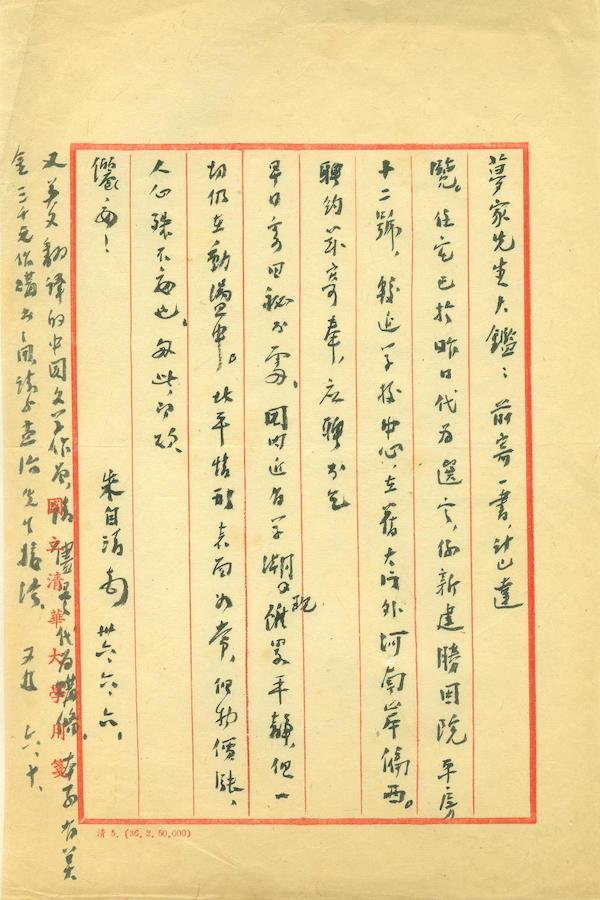 夢家先生大鑑：前寄一書，計已達
覽。住宅已於昨日代為選定，係新建勝因院平房
十二號，較近學校中心，在舊大門外河南岸偏西。
聘約茲寄奉，應聘書乞
早日寄回秘書處。國內近有學潮，現雖略平靜，但一
切仍在動盪中。北平情形表面如常，但物價漲，
人心殊不安也。匆此，即頌
儷安！
朱自清 卅六、六、六、
又英文翻譯的中國文學作品，請儘量代為購備。本系有美
金三千元作購書之用，請與孟治先生接洽。 又及 六、十、
國立清華大學用箋
清 5. (36. 2. 50,000)